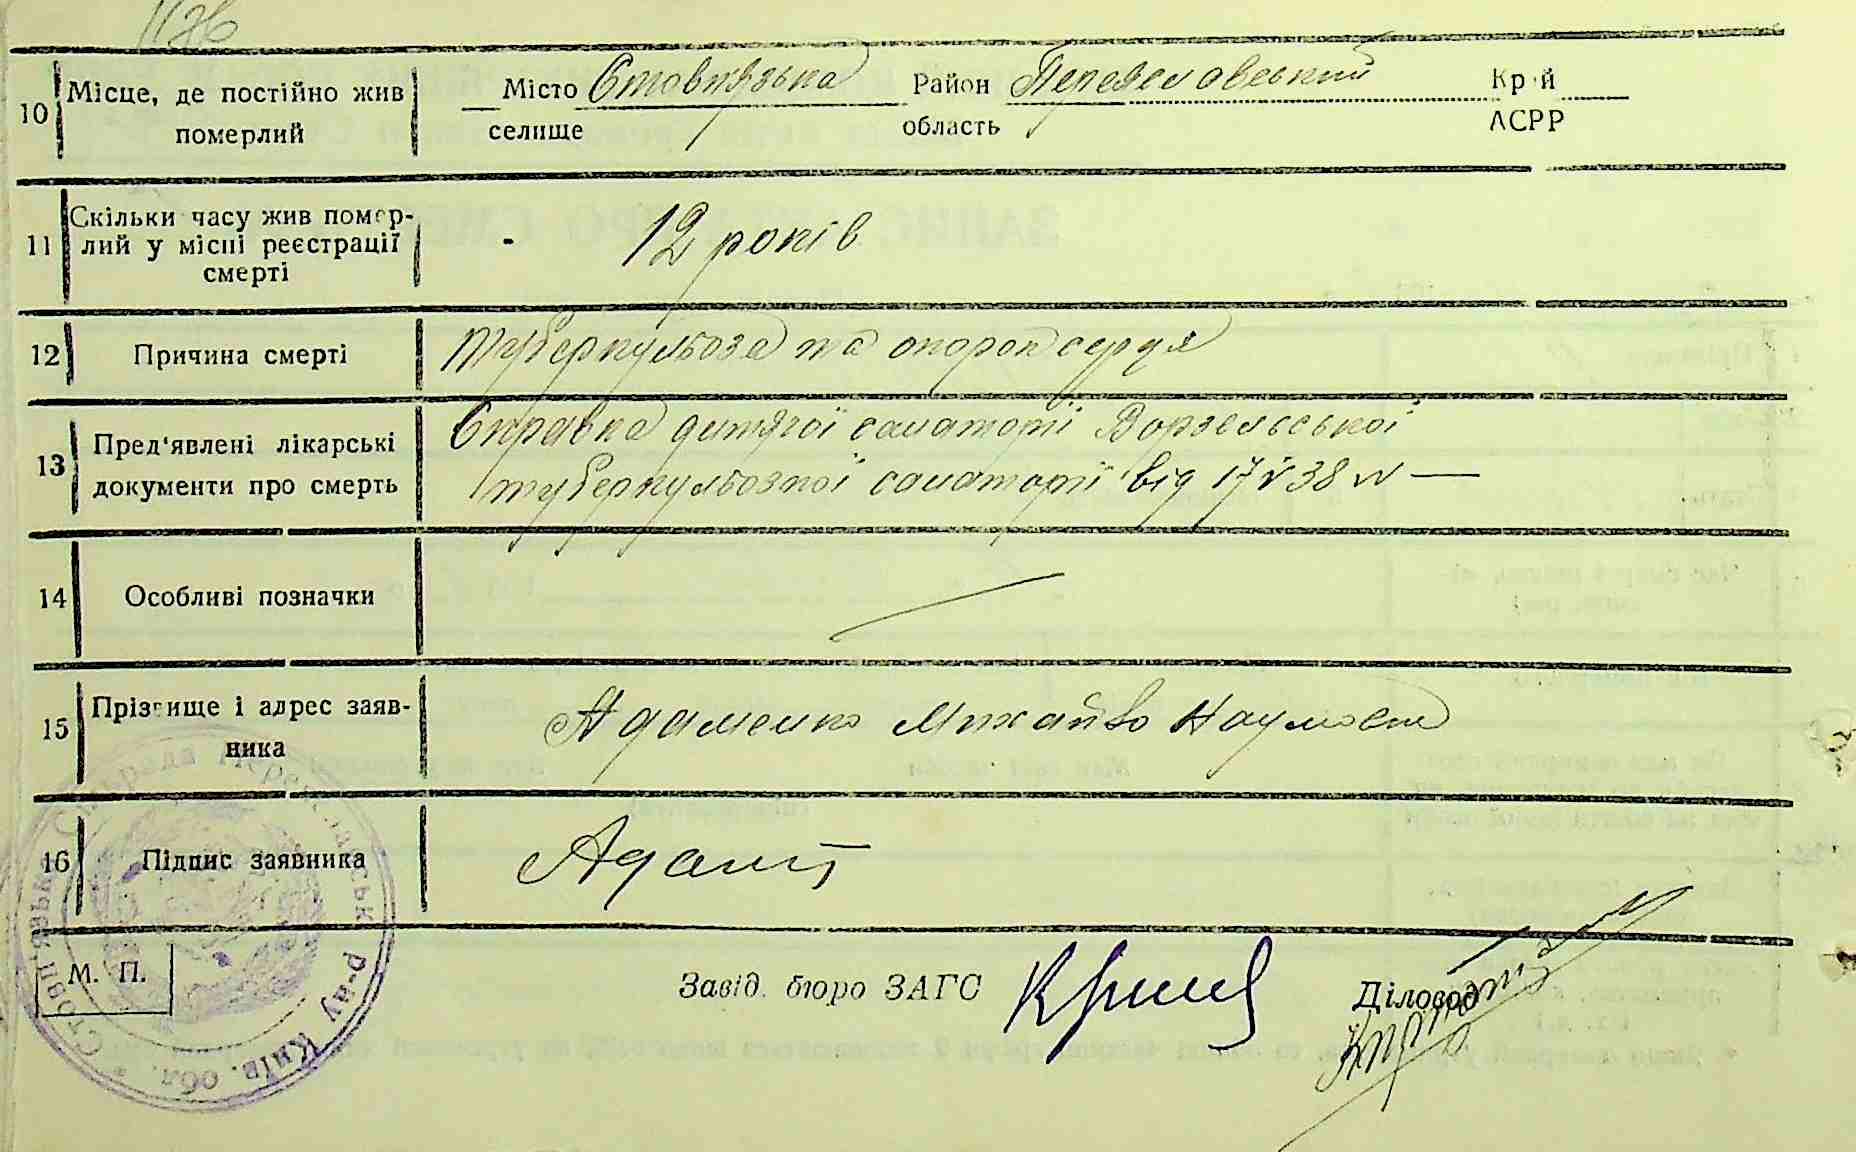 10 Місце, де постійно жив померлий
Місто Стовпязька Район Переяславський Край
селище область АСРР
11 Скільки часу жив помер-
лий у місці реєстрації
смерті
12 років
12 Причина смерті
Туберкульоза та опорок серця
13 Пред'явлені лікарські
документи про смерть
Справка дитячої санаторії Ворзельської
туберкульозної санаторії від 17 V 38
14 Особливі позначки
15 Прізвище і адрес заяв-
ника
Адаменко Михайло Наумович
16 Підпис заявника
Адам
М. П.
Завід. бюро ЗАГС
Діловод
Стовп'язька Сільрада Переяславськ. р-ну Київ. обл.